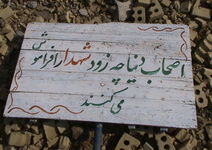 اصحاب دنیا چه زود شهدا را فراموش
می کنند